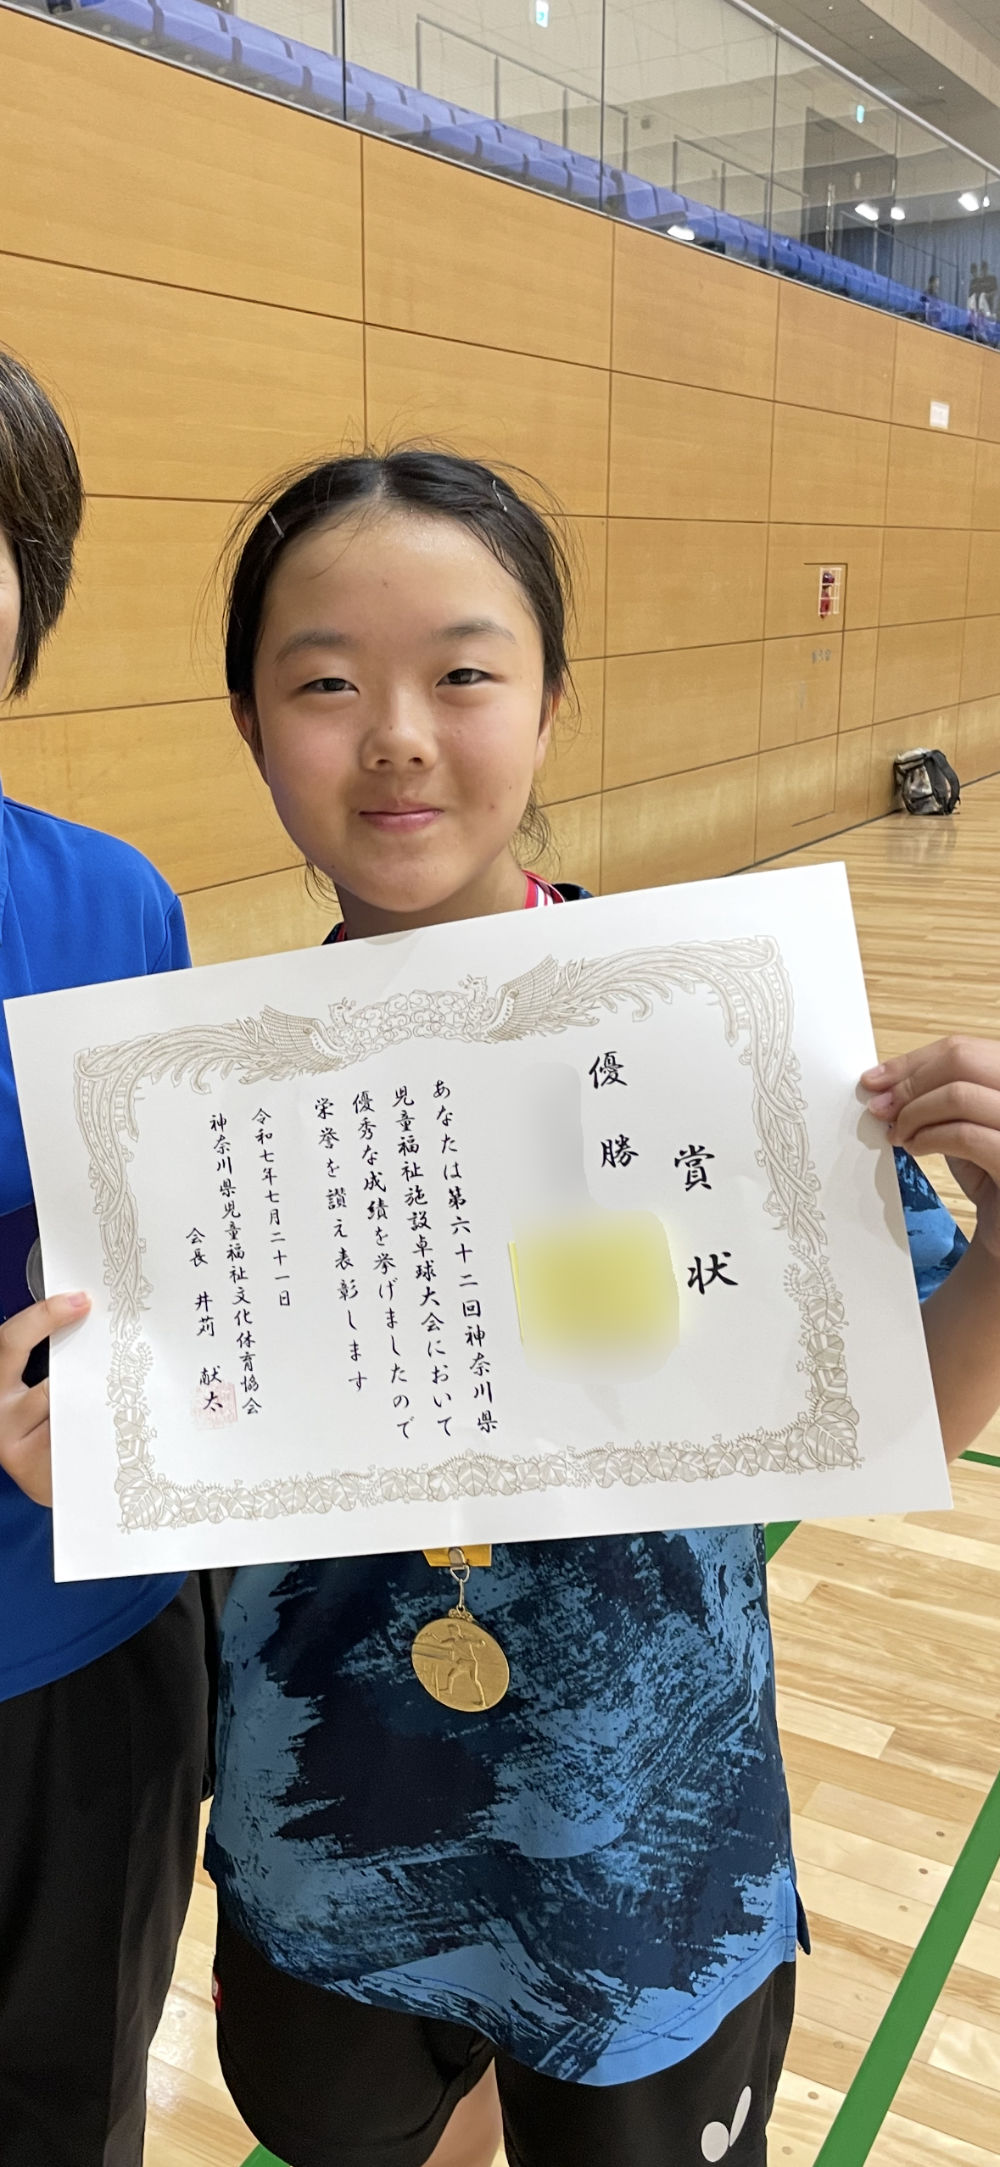 賞状
優勝
あなたは第六十二回神奈川県
児童福祉施設卓球大会において
優秀な成績を挙げましたので
栄誉を讃え表彰します
令和七年七月二十一日
神奈川県児童福祉文化体育協会
会長 井苅 献太